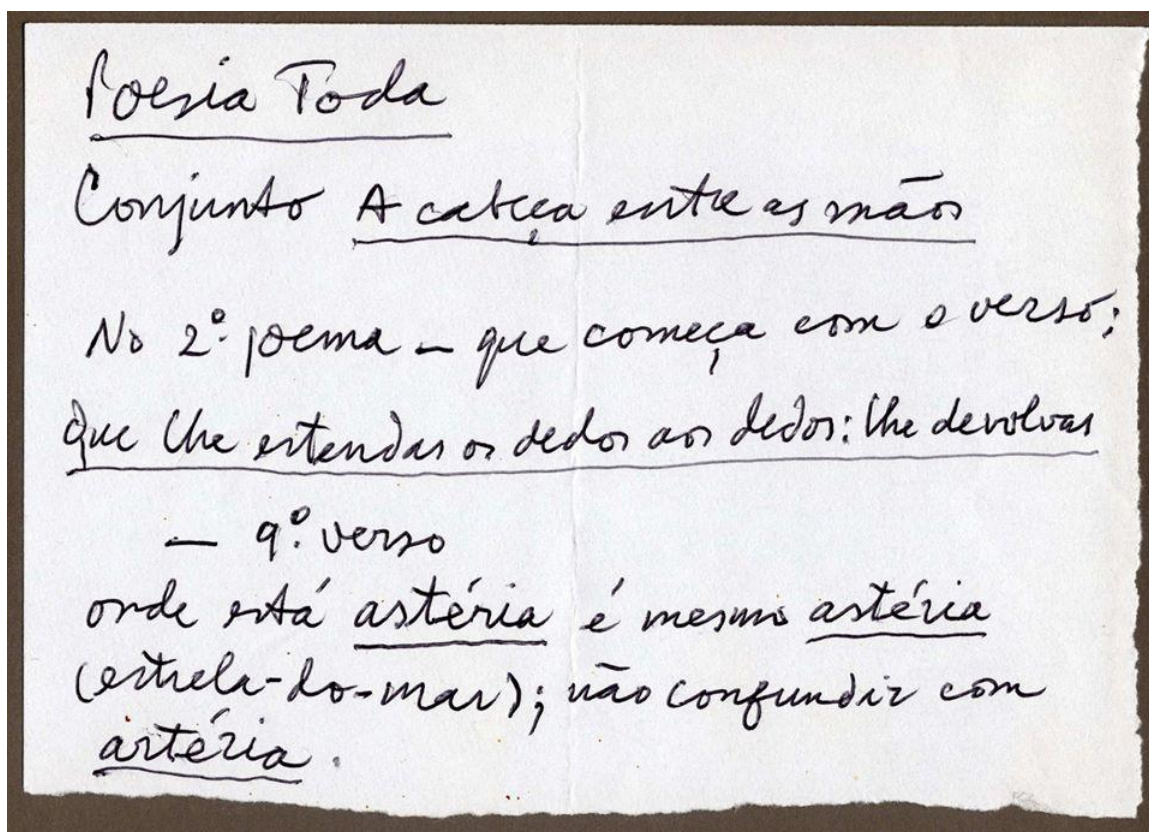 Poesia Toda
Conjunto A cabeça entre as mãos
No 2º poema — que começa com o verso:
Que lhe estendas os dedos aos dedos: lhe devolvas
— 9º verso
onde está astéria é mesmo astéria
(estrela-do-mar); não confundir com
artéria.